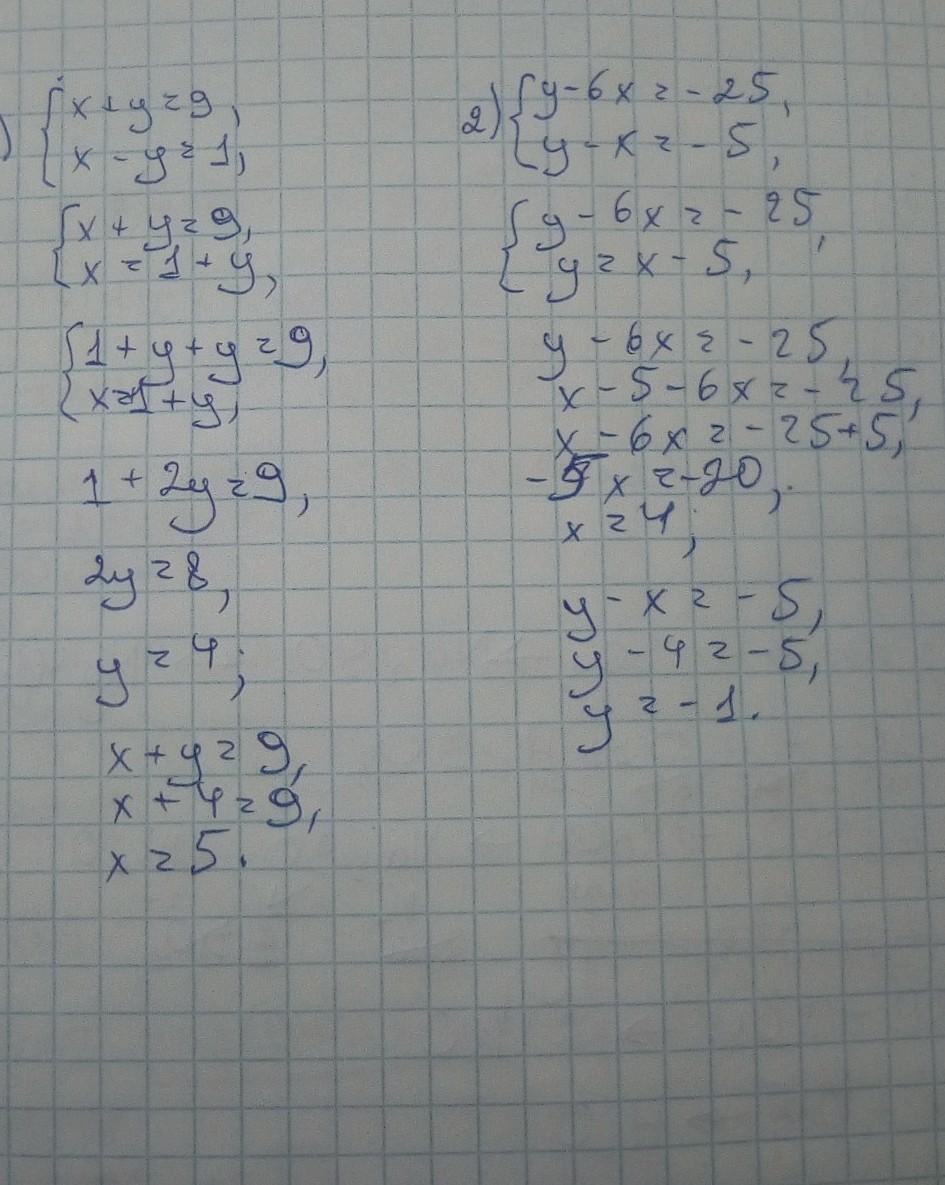 ) { x + y = 9,
x - y = 1,
{ x + y = 9,
x = 1 + y,
{ 1 + y + y = 9,
x = 1 + y,
1 + 2y = 9,
2y = 8,
y = 4;
x + y = 9,
x + 4 = 9,
x = 5.
2) { y - 6x = - 25,
y - x = - 5,
{ y - 6x = - 25,
y = x - 5,
y - 6x = - 25,
x - 5 - 6x = - 25,
x - 6x = - 25 + 5,
- 5x = - 20,
x = 4;
y - x = - 5,
y - 4 = - 5,
y = - 1.